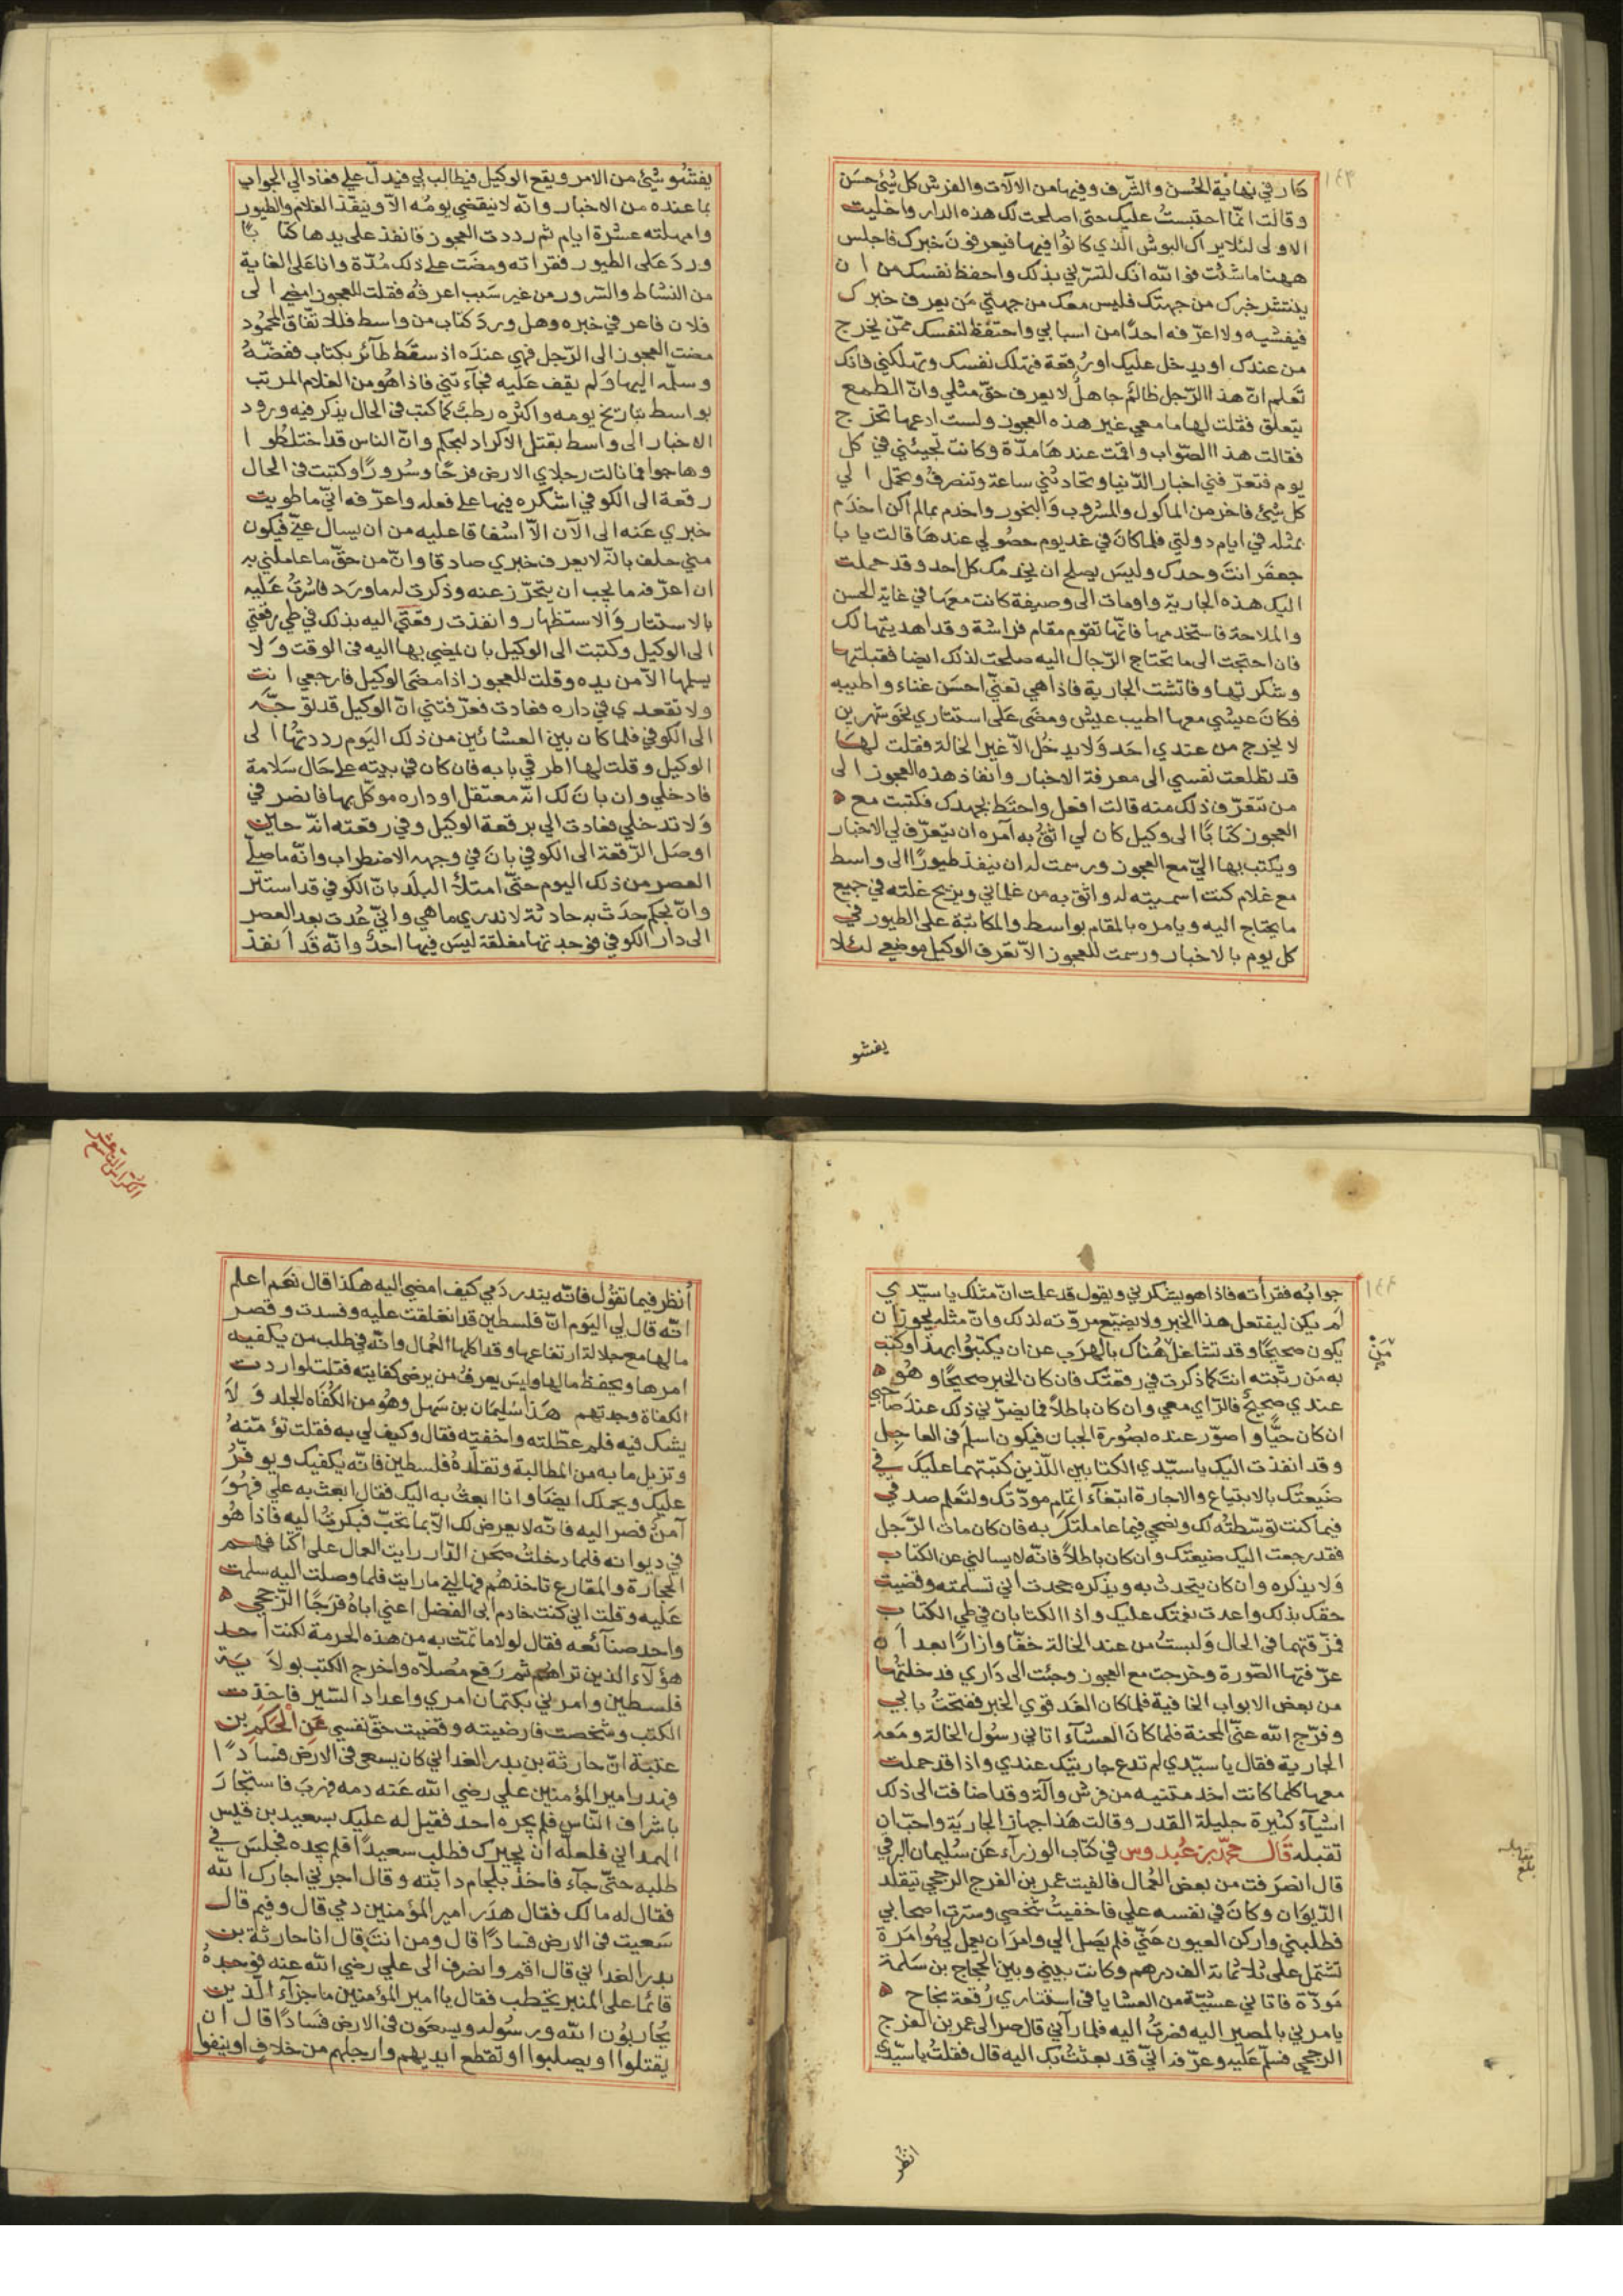 ١٤٣
دار في نهاية الحُسن والشّرف وفيها من الالات والفرش كل شيئ حسَن
وقالت انّما احتبستُ عليك حتى اصلحت لك هذه الدار واخليت
الاولى لئلا يراك البوش الذي كانوُا فيها فيعرفونَ خبرك فاجلس
ههنا ما شئت فوالله انك لتسرّني بذلك واحفظ نفسك من ان
ينتشر خبرك من جهتك فليس معك من جهتي مَن يعرف خبرك
فيفشيه ولا اعرّفه احدًا من اسبابي واحتفظ لنفسك ممّن يخرج
من عندك او يدخل عليك او رُقعة فتهلك نفسك وتهلكني فانك
تَعلم انّ هذا الرّجل ظالمٌ جاهلٌ لا يعرف حقّ مثلي وانّ الطمع
يتعلق فقلت لها ما معي غير هذه العجوز ولست ادعها تخرج
فقالت هذا الصّواب واقمت عندهَا مدّة وكانت تجيئني في كل
يوم فتعرّفني اخبار الدّنيا وتحادثني ساعة وتنصرفُ وتحمل الي
كل شيئ فاخر من الماكول والمشروب وَالبخور واخدم بما لم اكن اخدَم
بمثله في ايام دولتي فلما كانَ في غد يوم حصُولي عندهَا قالت يا با
جعفَر انتَ وحدك وليسَ يصلح ان يخدمك كل احد وقد حملت
اليك هذه الجارية واومات الى وصيفة كانت معهَا في غاية الحسن
والملاحة فاستخدمها فانّها تقوم مقام فراشة وقد اهديتها لك
فان احتجت الى ما يحتاج الرّجال اليه صلحت لذلك ايضا فقبلتها
وشكرتها وفاتشت الجارية فاذا هي تغنّي احسَن غناء واطيبه
فكانَ عيشي معها اطيب عيش ومضَى عَلى استتاري نحَو شهرين
لا يخرج من عندي احَد وَلا يدخُل الاّ غير الخالة فقلت لهَا
قد تطلعت نفسي الى معرفة الاخبار وانفاذ هذه العجوز الى
من تتعرّف ذلك منه قالت افعل واحتط بجهدك فكتبت مع
العجوز كتابًا الى وكيل كان لي اثقُ به آمره ان يتعرّف لي الاخبار
ويكتب بها اليّ مع العجوز ورسمت له ان ينفذ طيورًا الى واسط
مع غلام كنت اسميته له واثق به من غلماني ويزيح غلته في جميع
ما يحتاج اليه ويامره بالمقام بواسط والمكاتبة على الطيور في
كل يوم بالاخبار ورسمت للعجوز الاّ تعرف الوكيل موضعي لئلا
يفشو
يفشُو شيئ من الامر ويقع الوكيل فيطالب بي فيدلّ علي فعاد الي الجواب
بما عنده من الاخبار وانّه لا ينقضي يومُه الاّ وينفذ الغلام والطيور
وامهلته عشرة ايام ثم رددت العجوز فانفذ على يدها كتابًا
وردَ عَلى الطيور فقراته ومضَت على ذلك مُدّة وانا عَلى الغاية
من النشاط والسّرور من غير سَبب اعرفُه فقلت للعجوز امضي الى
فلان فاعرفي خبره وهل وردَ كتاب من واسط فللاتّفاق المحمُود
مضت العجوز الى الرّجل فهي عندَه اذ سقَط طآئر بكتاب ففضّهُ
وسلّمه اليها وَلم يقف عَليه فجآءتني فاذا هُو من الغلام المرتب
بواسط بتاريخ يومه واكثره رطبٌ كما كتب في الحال يذكر فيه ورود
الاخبار الى واسط بقتل الاكراد لبجكم وانّ الناس قد اختلطُوا
وهاجوا فما نالت رجلاي الارض فرحًا وسُرورًا وكتبت في الحال
رقعة الى الكوفي اشكره فيها على فعله واعرّفه انّي ما طويت
خبري عَنه الى الآن الاّ اشفاقا عليه من ان يسال عنّي فيكون
متي حلف بانّه لا يعرف خبري صادقا وانّ من حقّ ما عاملني به
ان اعرّفه ما يجب ان يتحرّز عنه وذكرت له ما ورَد فاشرتُ عَليه
بالاستتار وَالاستظهار وانفذت رقعتي اليه بذلك في طي رقعتي
الى الوكيل وكتبت الى الوكيل بان يمضي بها اليه في الوقت وَلا
يسلمها الاّ من يده وقلت للعجوز اذا مضَى الوكيل فارجعي انت
ولا تقعدي في داره فعادت فعرّفتني انّ الوكيل قد توجّه
الى الكوفي فلما كان بين العشائين من ذلك اليَوم رددتهُا الى
الوكيل وقلت لها اطرقي بابه فان كان في بيته على حَال سَلامة
فادخلي وان بانَ لك انّه معتقل او داره موكّل بها فانصرفي
وَلا تدخلي فعادت الي برقعة الوكيل وفي رقعته انّه حاين
اوصَل الرّقعة الى الكوفي بانَ في وجهه الاضطراب وانّه ما صلّى
العصر من ذلك اليوم حتّى امتلأ البلَد بانّ الكوفي قد استتر
وانّ بجكم حدَث به حادثة لا ندري ما هي وانّي عُدت بعد العصر
الى دار الكوفي فوجدتها مغلقة ليسَ فيها احدٌ وانّه قَد اَنفذ
١٤٤
جوابُه فقرأته فاذا هو يشكرني ويقول قد علمت انّ مثلك يا سيّدي
لَم يكن ليفتعل هذا الخبر ولا يضيّع مروّته لذلك وانّ مثله يجوز ان
يكون صحيحًا وقد تشاغل هُناك بالهرَب عن ان يكتبُوا بهذا وكتب
مَن
به مَن رتّبته انتَ كما ذكرت في رقعتك فان كان الخبر صحيحًا وهُو
عندي صحيحٌ فالرّاي معي وان كان باطلاً فما يضرّني ذلك عندَ صاحبي
ان كان حيًّا واصوّر عنده بصُورة الجبان فيكون اسلَم في العاجِل
وقد انفذت اليك يا سيّدي الكتابين اللّذين كتبتهما عليك في
ضَيعتك بالابتياع والاجارة ابتغآء اتمام مودّتك ولتعلم صدقي
فيما كنت توسّطتُه لك ونصحي فيما عاملتكَ به فان كان مات الرّجل
فقد رجعت اليك ضيعتك وان كان باطلاً فانّه لا يسالني عن الكتاب
وَلا يذكره وان كان يتحدث به ويذكره جحدت اني تسلمته وقضيت
حقك بذلك واعدت نعمتك عليك واذا الكتابان في طي الكتاب
فمزّقتهما في الحال وَلبستُ من عند الخالة خفّا وازارًا بعد ان
عرّفتها الصّورة وخرجت مع العجوز وجئت الى دَاري فدخلتُها
من بعض الابواب الخافية فلما كان الغَد قوي الخبر ففتحتُ بابي
وفرّج الله عنّي المحنة فلما كانَ العشآء اتاني رسُول الخالة ومَعه
الجارية فقال يا سيّدي لم تدع جاريتك عندي واذا قد حملت
معها كلما كانت اخدمتنيه من فرش وآلة وقد اضافت الى ذلك
اشيآء كثيرة جليلة القدر وقالت هَذا جهاز الجاريَة واحبّ ان
تقبله قَال محمّد بن عُبدوس في كتاب الوزرآء عَن سُليمان البرقي
قال انصرَفت من بعض العُمال فالفيت عمر بن الفرج الرجحي يتقلد
الدّيوان وكانَ في نفسه علي فاخفيتُ شخصي وسترت اصحابي
فطلبني واركن العيون عَنّي فلم يَصَل الي وامرَ ان يعمل لي مُوامَرة
تشتمل على ثلاثمائة الف درهم وكانت بيني وبين الحجاج بن سَلمة
مَودّة فاتاني عشيّة من العشايا في استتاري رُقعة نجاح
يامرني بالمصير اليه فصرتُ اليه فلما رآني قال صر الى عمر بن الفرج
الرجحي فسلّم عَليه وعرّفه انّي قد بعثتُ بك اليه قال فقلتُ يا سيّدي
انظر
الكراس
اُنظر فيما تقوُل فانّه ينذر دَمي كيفَ امضي اليه هكذا قال نعَم اعلم
انّه قال لي اليَوم انّ فلسطين قد انغلقت عليه وفسدت وقصر
مالها مع جلالة ارتفاعها وقد اكلها العُمال وانّه في طلب من يكفيه
امرها ويحفظ مالها وليسَ يعرفُ من يرضى كفايته فقلت لو اردت
الكفاة وجدتهم هَذا سُليمَان بن سَهل وهُو من الكُفاه الجلد وَلاَ
يشك فيه فلم عطّلته واخفته فقال وكيف لي به فقلت تؤمّنهُ
وتزيل ما به من المطالبة وتقلدهُ فلسطين فانّه يكفيك ويوفّرُ
عليك ويجملك ايضَا وانا ابعثُ به اليك فقال ابعث به علي فهُوَ
آمنٌ فصر اليه فانّه لا يعرض لك الاّ بما تحبّ فبكرتُ اليه فاذا هُو
في ديوانه فلما دخلتُ صحن الدّار رايت العمال على اكتافهم
الحجارة والمقارع تاخذهُم فهالني ما رايت فلما وصلت اليه سلمت
عَليه وقلت اني كنت خادم ابى الفضل اعني اباهُ فرَجًا الرّجحي
واحد صنآئعه فقال لولا ما تمّت به من هذه الحرمة لكنت احد
هؤلآء الذين تراهُم ثم رَفع مُصلّاه واخرج الكتب بولاَيَة
فلسطين وامرني بكتمان امري واعداد السّير فاخذت
الكتب وشخصت فارضيته وقضيت حقّ نفسي عَن الحَكم بن
عتيبة انّ حارثة بن بدر الغداني كان يسعى في الارض فسادًا
فهدر امير المؤمنين علي رضي الله عَنه دمه فهربَ فاستجارَ
باشراف النّاس فلم يجره احد فقيل له عليك بسعيد بن قيس
الهمداني فلعلّه ان يجيرك فطلب سعيدًا فلم يجده فجلسَ في
طلبه حتّى جآء فاخذ بلجام دابّته وقال اجرني اجارك الله
فقال له ما لك فقال هدَر امير المؤمنين دمي قال وفيم قال
سَعيت في الارض فسادًا قال ومن انتَ قال انا حارثة بن
بدر الغداني قال اقم وانصرف الى علي رضي الله عنه فوجدهُ
قائمًا على المنبر يخطب فقال يا امير المؤمنين ما جزآء الّذين
يُحاربُون الله ورسُوله ويسعَون في الارض فَسادًا قال ان
يقتلوا او يصلبوا او تقطع ايديهم وارجلهم من خلاف او ينفوا